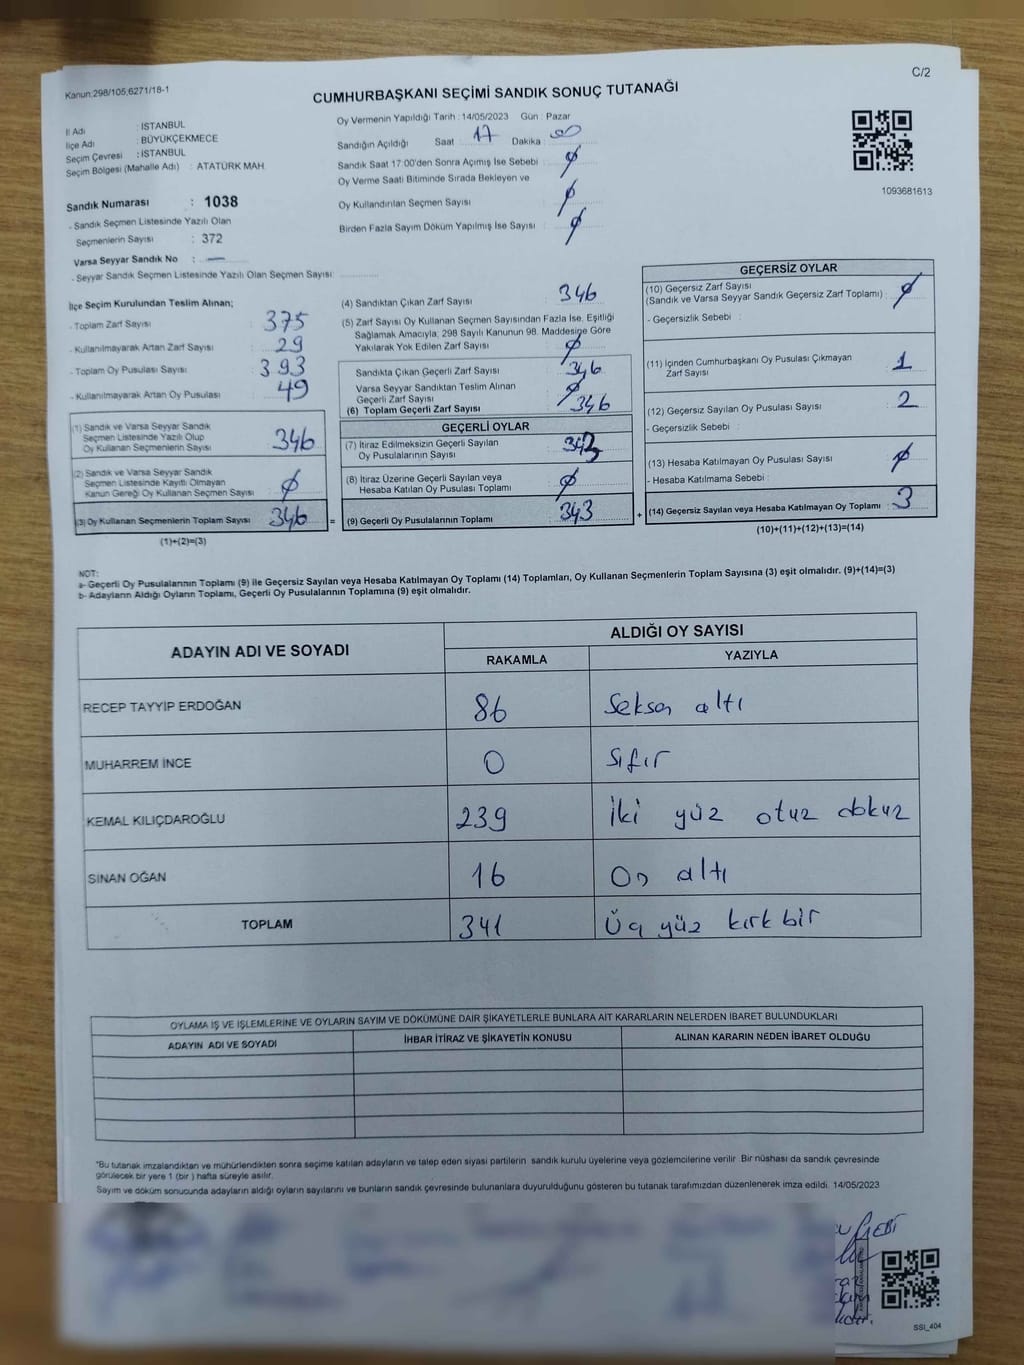 Kanun:298/105,6271/18-1
C/2
CUMHURBAŞKANI SEÇİMİ SANDIK SONUÇ TUTANAĞI
İl Adı : İSTANBUL
İlçe Adı : BÜYÜKÇEKMECE
Seçim Çevresi : İSTANBUL
Seçim Bölgesi (Mahalle Adı) : ATATÜRK MAH.
Sandık Numarası : 1038
- Sandık Seçmen Listesinde Yazılı Olan
Seçmenlerin Sayısı : 372
Varsa Seyyar Sandık No : —
- Seyyar Sandık Seçmen Listesinde Yazılı Olan Seçmen Sayısı:
Oy Vermenin Yapıldığı Tarih : 14/05/2023 Gün : Pazar
Sandığın Açıldığı Saat 17 Dakika : 00
Sandık Saat 17:00'den Sonra Açımış İse Sebebi : ∅
Oy Verme Saati Bitiminde Sırada Bekleyen ve
Oy Kullandırılan Seçmen Sayısı : ∅
Birden Fazla Sayım Döküm Yapılmış İse Sayısı : ∅
1093681613
İlçe Seçim Kurulundan Teslim Alınan;
- Toplam Zarf Sayısı : 375
- Kullanılmayarak Artan Zarf Sayısı : 29
- Toplam Oy Pusulası Sayısı : 393
- Kullanılmayarak Artan Oy Pusulası : 49
(1) Sandık ve Varsa Seyyar Sandık
Seçmen Listesinde Yazılı Olup
Oy Kullanan Seçmenlerin Sayısı : 346
(2) Sandık ve Varsa Seyyar Sandık
Seçmen Listesinde Kayıtlı Olmayan
Kanun Gereği Oy Kullanan Seçmen Sayısı : ∅
(3) Oy Kullanan Seçmenlerin Toplam Sayısı : 346
(1)+(2)=(3)
(4) Sandıktan Çıkan Zarf Sayısı : 346
(5) Zarf Sayısı Oy Kullanan Seçmen Sayısından Fazla İse, Eşitliği
Sağlamak Amacıyla, 298 Sayılı Kanunun 98. Maddesine Göre
Yakılarak Yok Edilen Zarf Sayısı : ∅
Sandıkta Çıkan Geçerli Zarf Sayısı : 346
Varsa Seyyar Sandıktan Teslim Alınan
Geçerli Zarf Sayısı : ∅
(6) Toplam Geçerli Zarf Sayısı : 346
GEÇERLİ OYLAR
(7) İtiraz Edilmeksizin Geçerli Sayılan
Oy Pusulalarının Sayısı : 343
(8) İtiraz Üzerine Geçerli Sayılan veya
Hesaba Katılan Oy Pusulası Toplamı : ∅
= (9) Geçerli Oy Pusulalarının Toplamı : 343
GEÇERSİZ OYLAR
(10) Geçersiz Zarf Sayısı
(Sandık ve Varsa Seyyar Sandık Geçersiz Zarf Toplamı) : ∅
- Geçersizlik Sebebi :
(11) İçinden Cumhurbaşkanı Oy Pusulası Çıkmayan
Zarf Sayısı : 1
(12) Geçersiz Sayılan Oy Pusulası Sayısı : 2
- Geçersizlik Sebebi :
(13) Hesaba Katılmayan Oy Pusulası Sayısı : ∅
- Hesaba Katılmama Sebebi :
+ (14) Geçersiz Sayılan veya Hesaba Katılmayan Oy Toplamı : 3
(10)+(11)+(12)+(13)=(14)
NOT:
a- Geçerli Oy Pusulalarının Toplamı (9) ile Geçersiz Sayılan veya Hesaba Katılmayan Oy Toplamı (14) Toplamları, Oy Kullanan Seçmenlerin Toplam Sayısına (3) eşit olmalıdır. (9)+(14)=(3)
b- Adayların Aldığı Oyların Toplamı, Geçerli Oy Pusulalarının Toplamına (9) eşit olmalıdır.
ADAYIN ADI VE SOYADI
ALDIĞI OY SAYISI
RAKAMLA YAZIYLA
RECEP TAYYİP ERDOĞAN 86 Seksen altı
MUHARREM İNCE 0 Sıfır
KEMAL KILIÇDAROĞLU 239 İki yüz otuz dokuz
SİNAN OĞAN 16 On altı
TOPLAM 341 Üç yüz kırk bir
OYLAMA İŞ VE İŞLEMLERİNE VE OYLARIN SAYIM VE DÖKÜMÜNE DAİR ŞİKAYETLERLE BUNLARA AİT KARARLARIN NELERDEN İBARET BULUNDUKLARI
ADAYIN ADI VE SOYADI İHBAR İTİRAZ VE ŞİKAYETİN KONUSU ALINAN KARARIN NEDEN İBARET OLDUĞU
*Bu tutanak imzalandıktan ve mühürlendikten sonra seçime katılan adayların ve talep eden siyasi partilerin sandık kurulu üyelerine veya gözlemcilerine verilir. Bir nüshası da sandık çevresinde
görülecek bir yere 1 (bir ) hafta süreyle asılır.
Sayım ve döküm sonucunda adayların aldığı oyların sayılarını ve bunların sandık çevresinde bulunanlara duyurulduğunu gösteren bu tutanak tarafımızdan düzenlenerek imza edildi. 14/05/2023
SSI_404